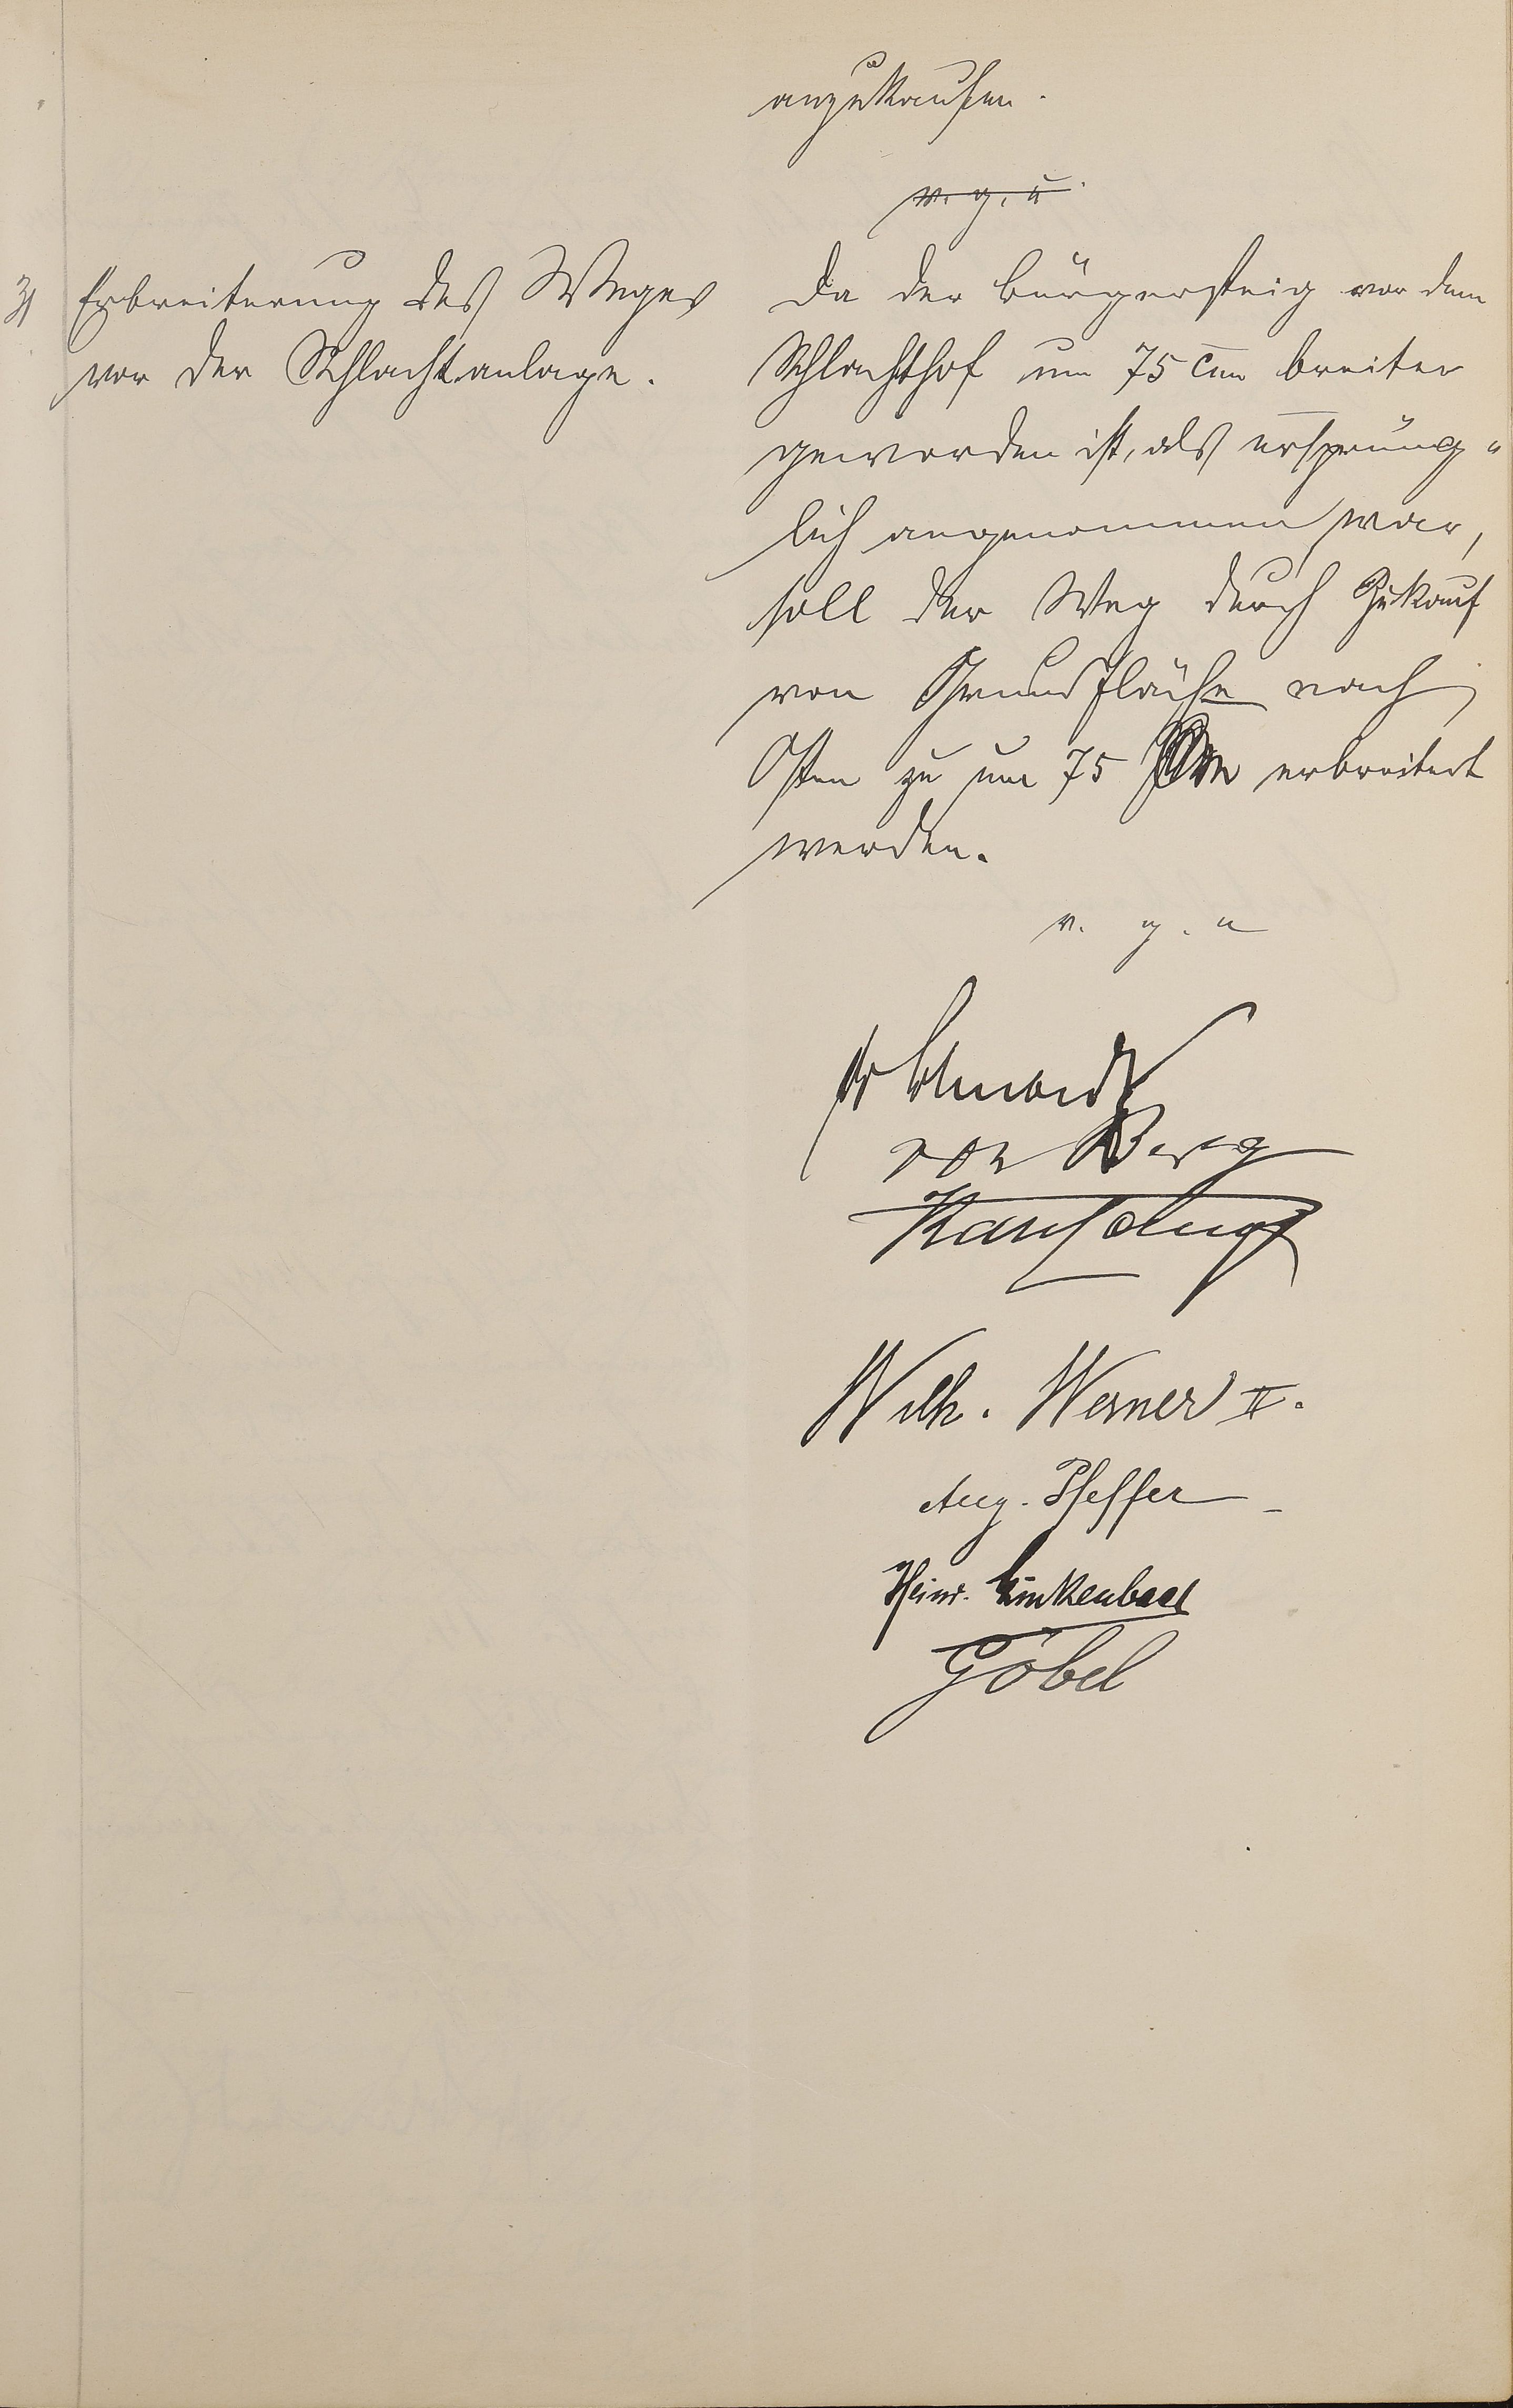 anzukaufen.
v. g. u.
3) Erbreiterung des Weges
vor der Schlachtanlage.
Da der Bürgersteig vor dem
Schlachthof um 75 cm breiter
geworden ist, als ursprüng-
lich angenommen war,
soll der Weg durch Zukauf
von Grundfläche nach
Osten zu um 75 erbreitert
werden.
v. g. u
von Berg
Wilh. Werner II.
Aug. Pfeffer
Heinr. Linkenbach
Göbel